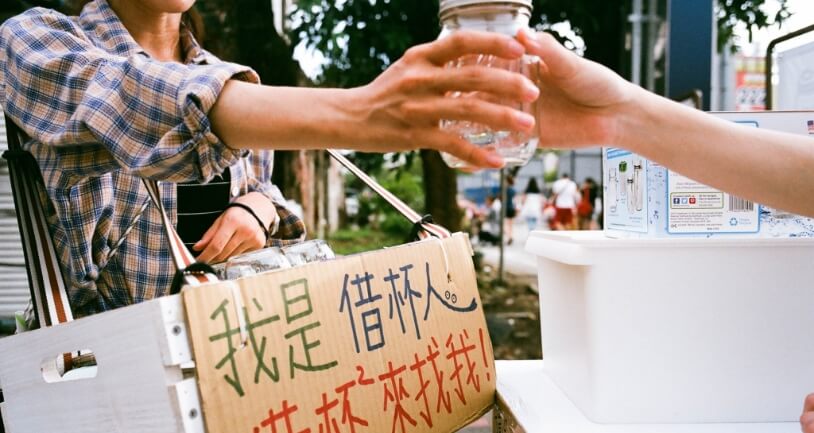 我是借杯人
借杯²來找我!